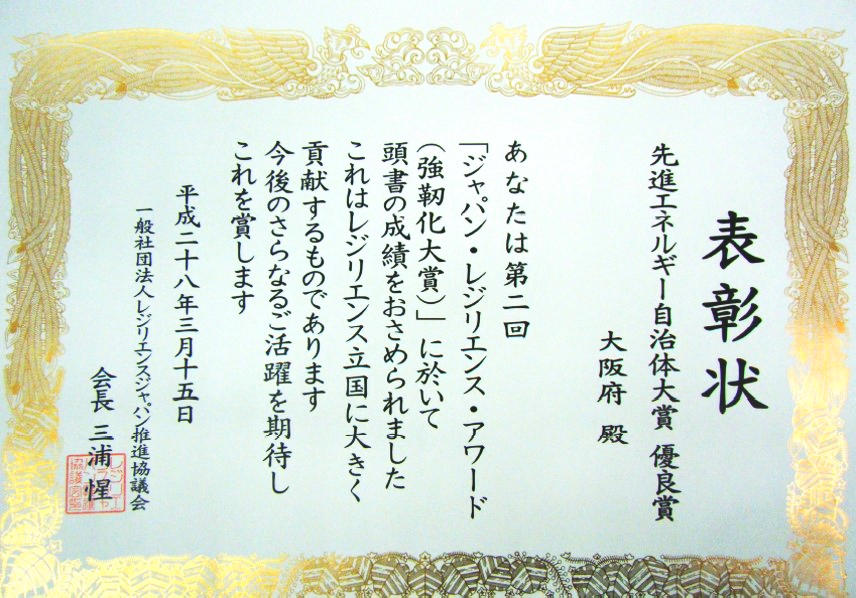 表彰状
先進エネルギー自治体大賞 優良賞
大阪府 殿
あなたは第二回
「ジャパン・レジリエンス・アワード
(強靭化大賞)」に於いて
頭書の成績をおさめられました
これはレジリエンス立国に大きく
貢献するものであります
今後のさらなるご活躍を期待し
これを賞します
平成二十八年三月十五日
一般社団法人レジリエンスジャパン推進協議会
会長 三浦 惺